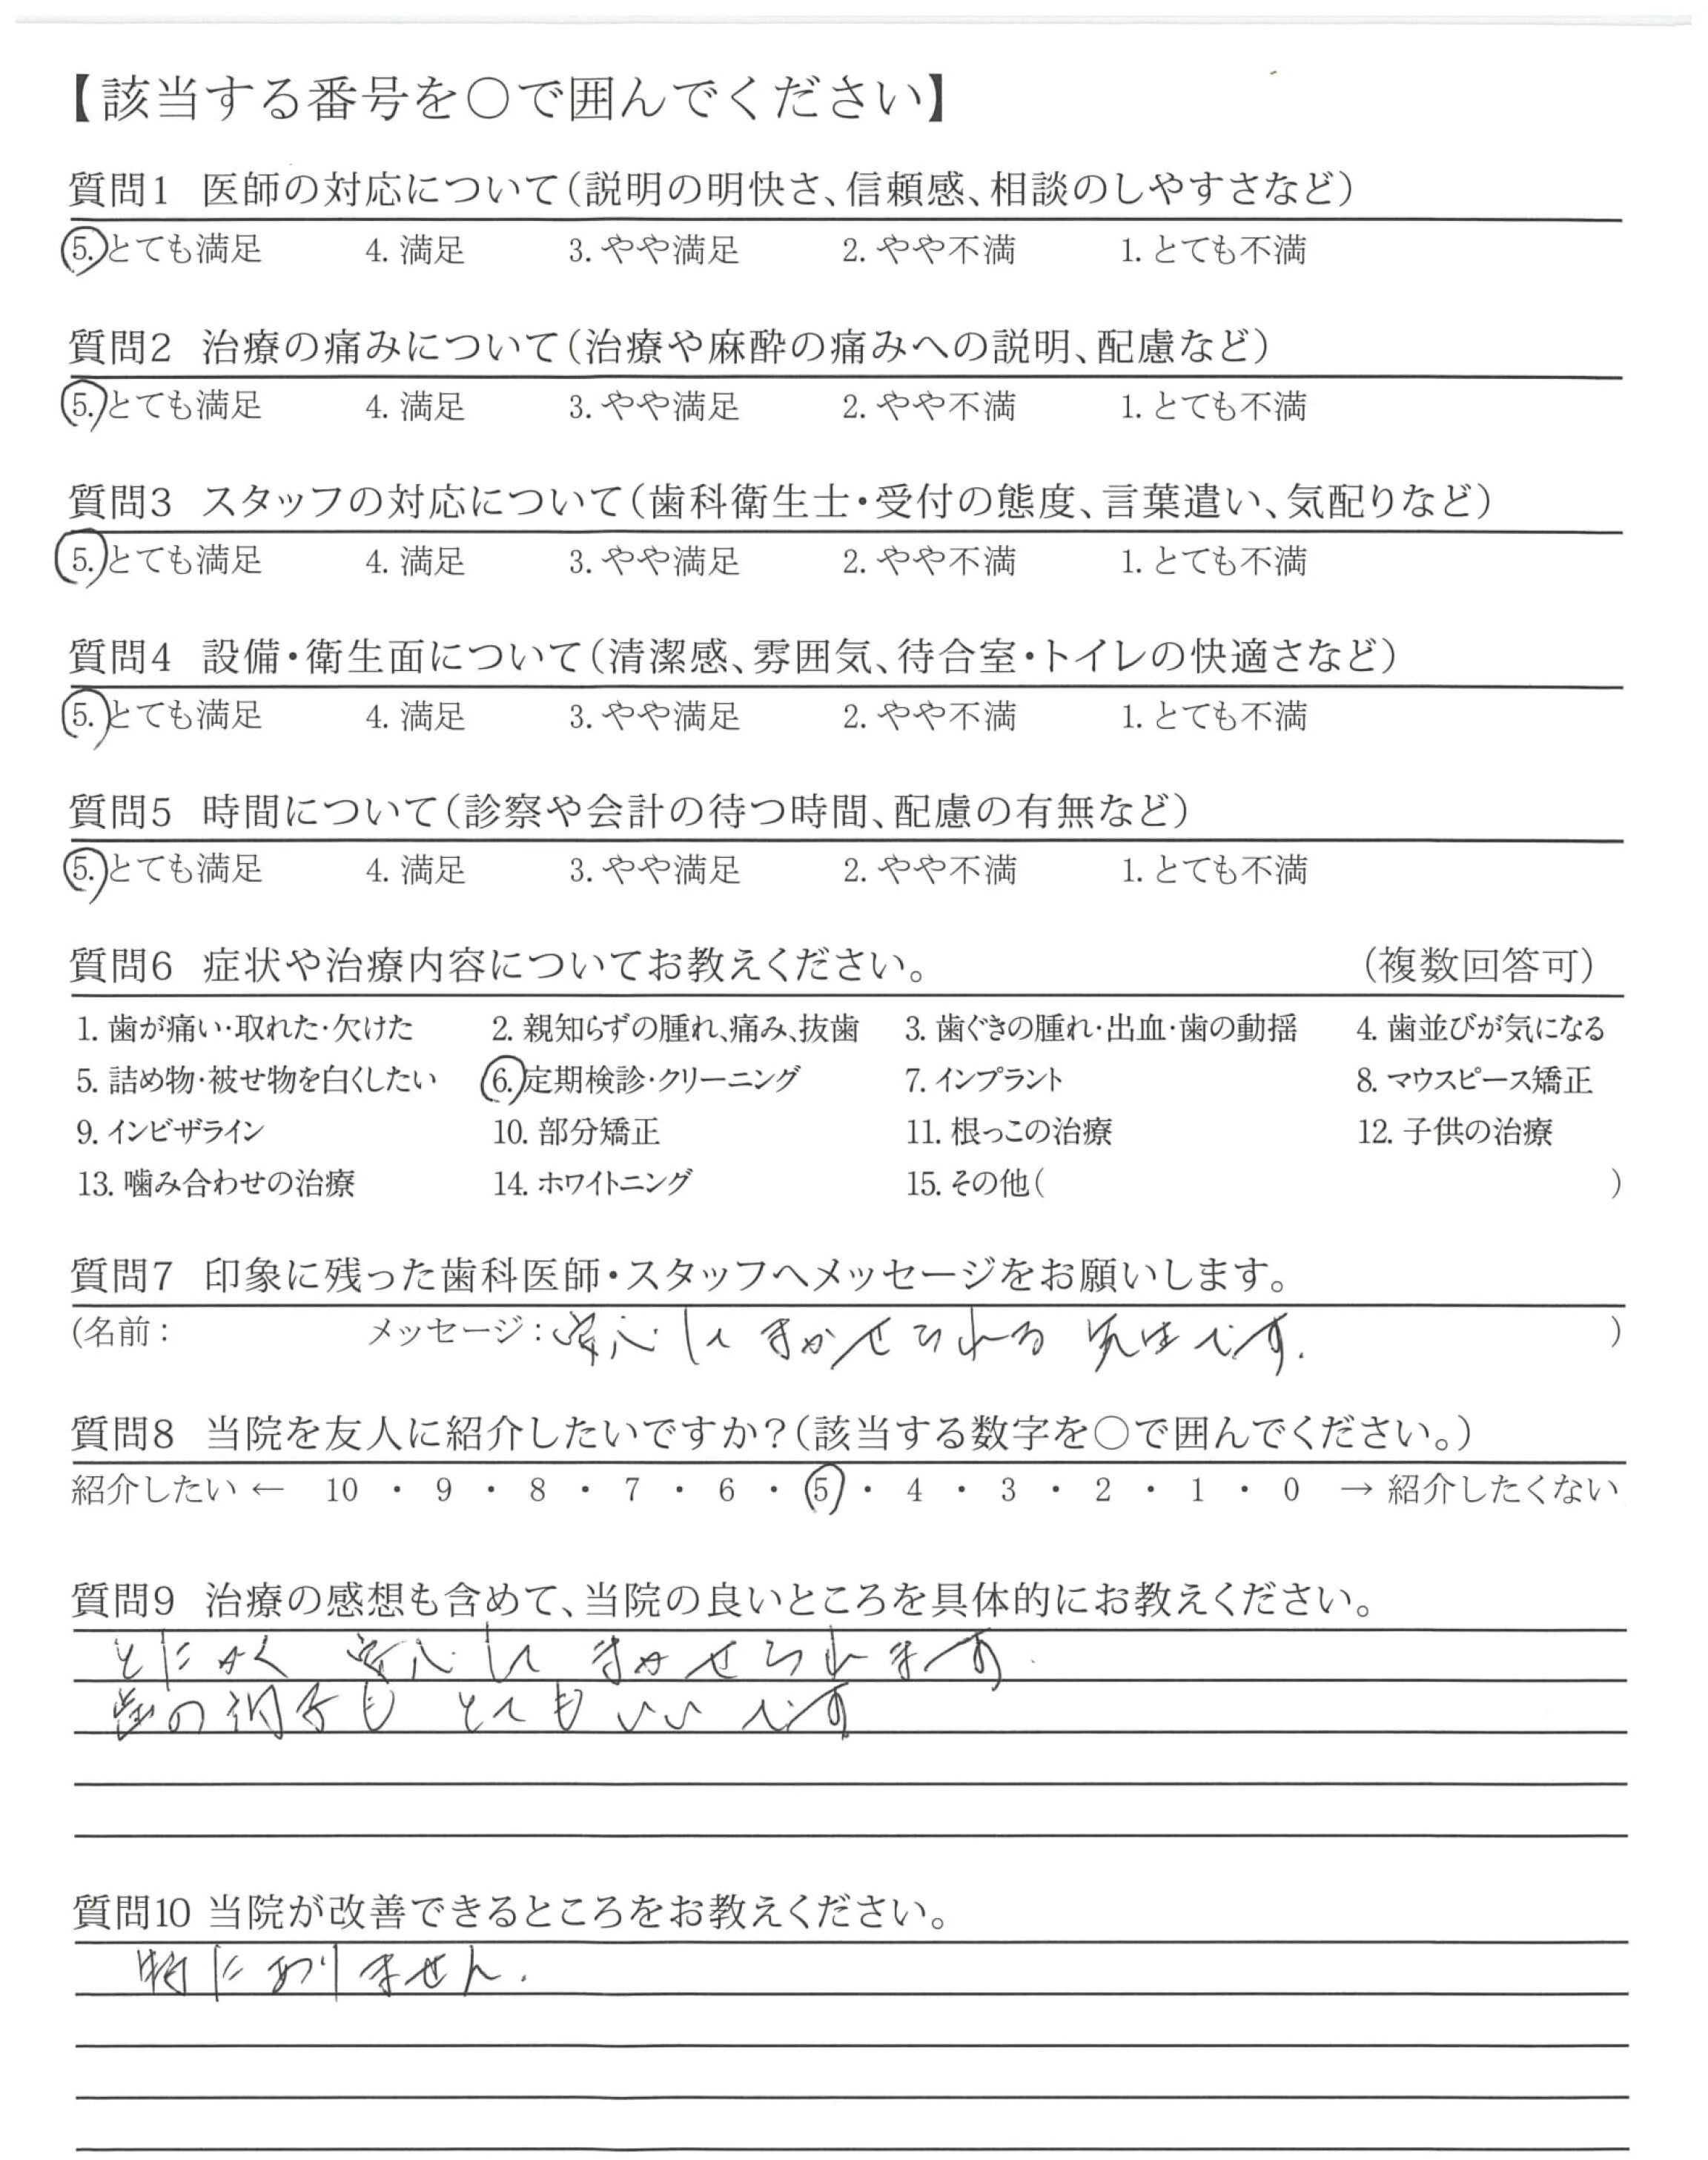 【該当する番号を○で囲んでください】
質問1 医師の対応について(説明の明快さ、信頼感、相談のしやすさなど)
5. とても満足 4. 満足 3. やや満足 2. やや不満 1. とても不満
質問2 治療の痛みについて(治療や麻酔の痛みへの説明、配慮など)
5. とても満足 4. 満足 3. やや満足 2. やや不満 1. とても不満
質問3 スタッフの対応について(歯科衛生士・受付の態度、言葉遣い、気配りなど)
5. とても満足 4. 満足 3. やや満足 2. やや不満 1. とても不満
質問4 設備・衛生面について(清潔感、雰囲気、待合室・トイレの快適さなど)
5. とても満足 4. 満足 3. やや満足 2. やや不満 1. とても不満
質問5 時間について(診察や会計の待つ時間、配慮の有無など)
5. とても満足 4. 満足 3. やや満足 2. やや不満 1. とても不満
質問6 症状や治療内容についてお教えください。 (複数回答可)
1. 歯が痛い・取れた・欠けた 2. 親知らずの腫れ、痛み、抜歯 3. 歯ぐきの腫れ・出血・歯の動揺 4. 歯並びが気になる
5. 詰め物・被せ物を白くしたい 6. 定期検診・クリーニング 7. インプラント 8. マウスピース矯正
9. インビザライン 10. 部分矯正 11. 根っこの治療 12. 子供の治療
13. 噛み合わせの治療 14. ホワイトニング 15. その他( )
質問7 印象に残った歯科医師・スタッフへメッセージをお願いします。
(名前: メッセージ: 安心してまかせられる先生です. )
質問8 当院を友人に紹介したいですか?(該当する数字を○で囲んでください。)
紹介したい ← 10 ・ 9 ・ 8 ・ 7 ・ 6 ・ 5 ・ 4 ・ 3 ・ 2 ・ 1 ・ 0 → 紹介したくない
質問9 治療の感想も含めて、当院の良いところを具体的にお教えください。
とにかく 安心して まかせられます.
歯の調子も とてもいいです
質問10 当院が改善できるところをお教えください。
特にありません.